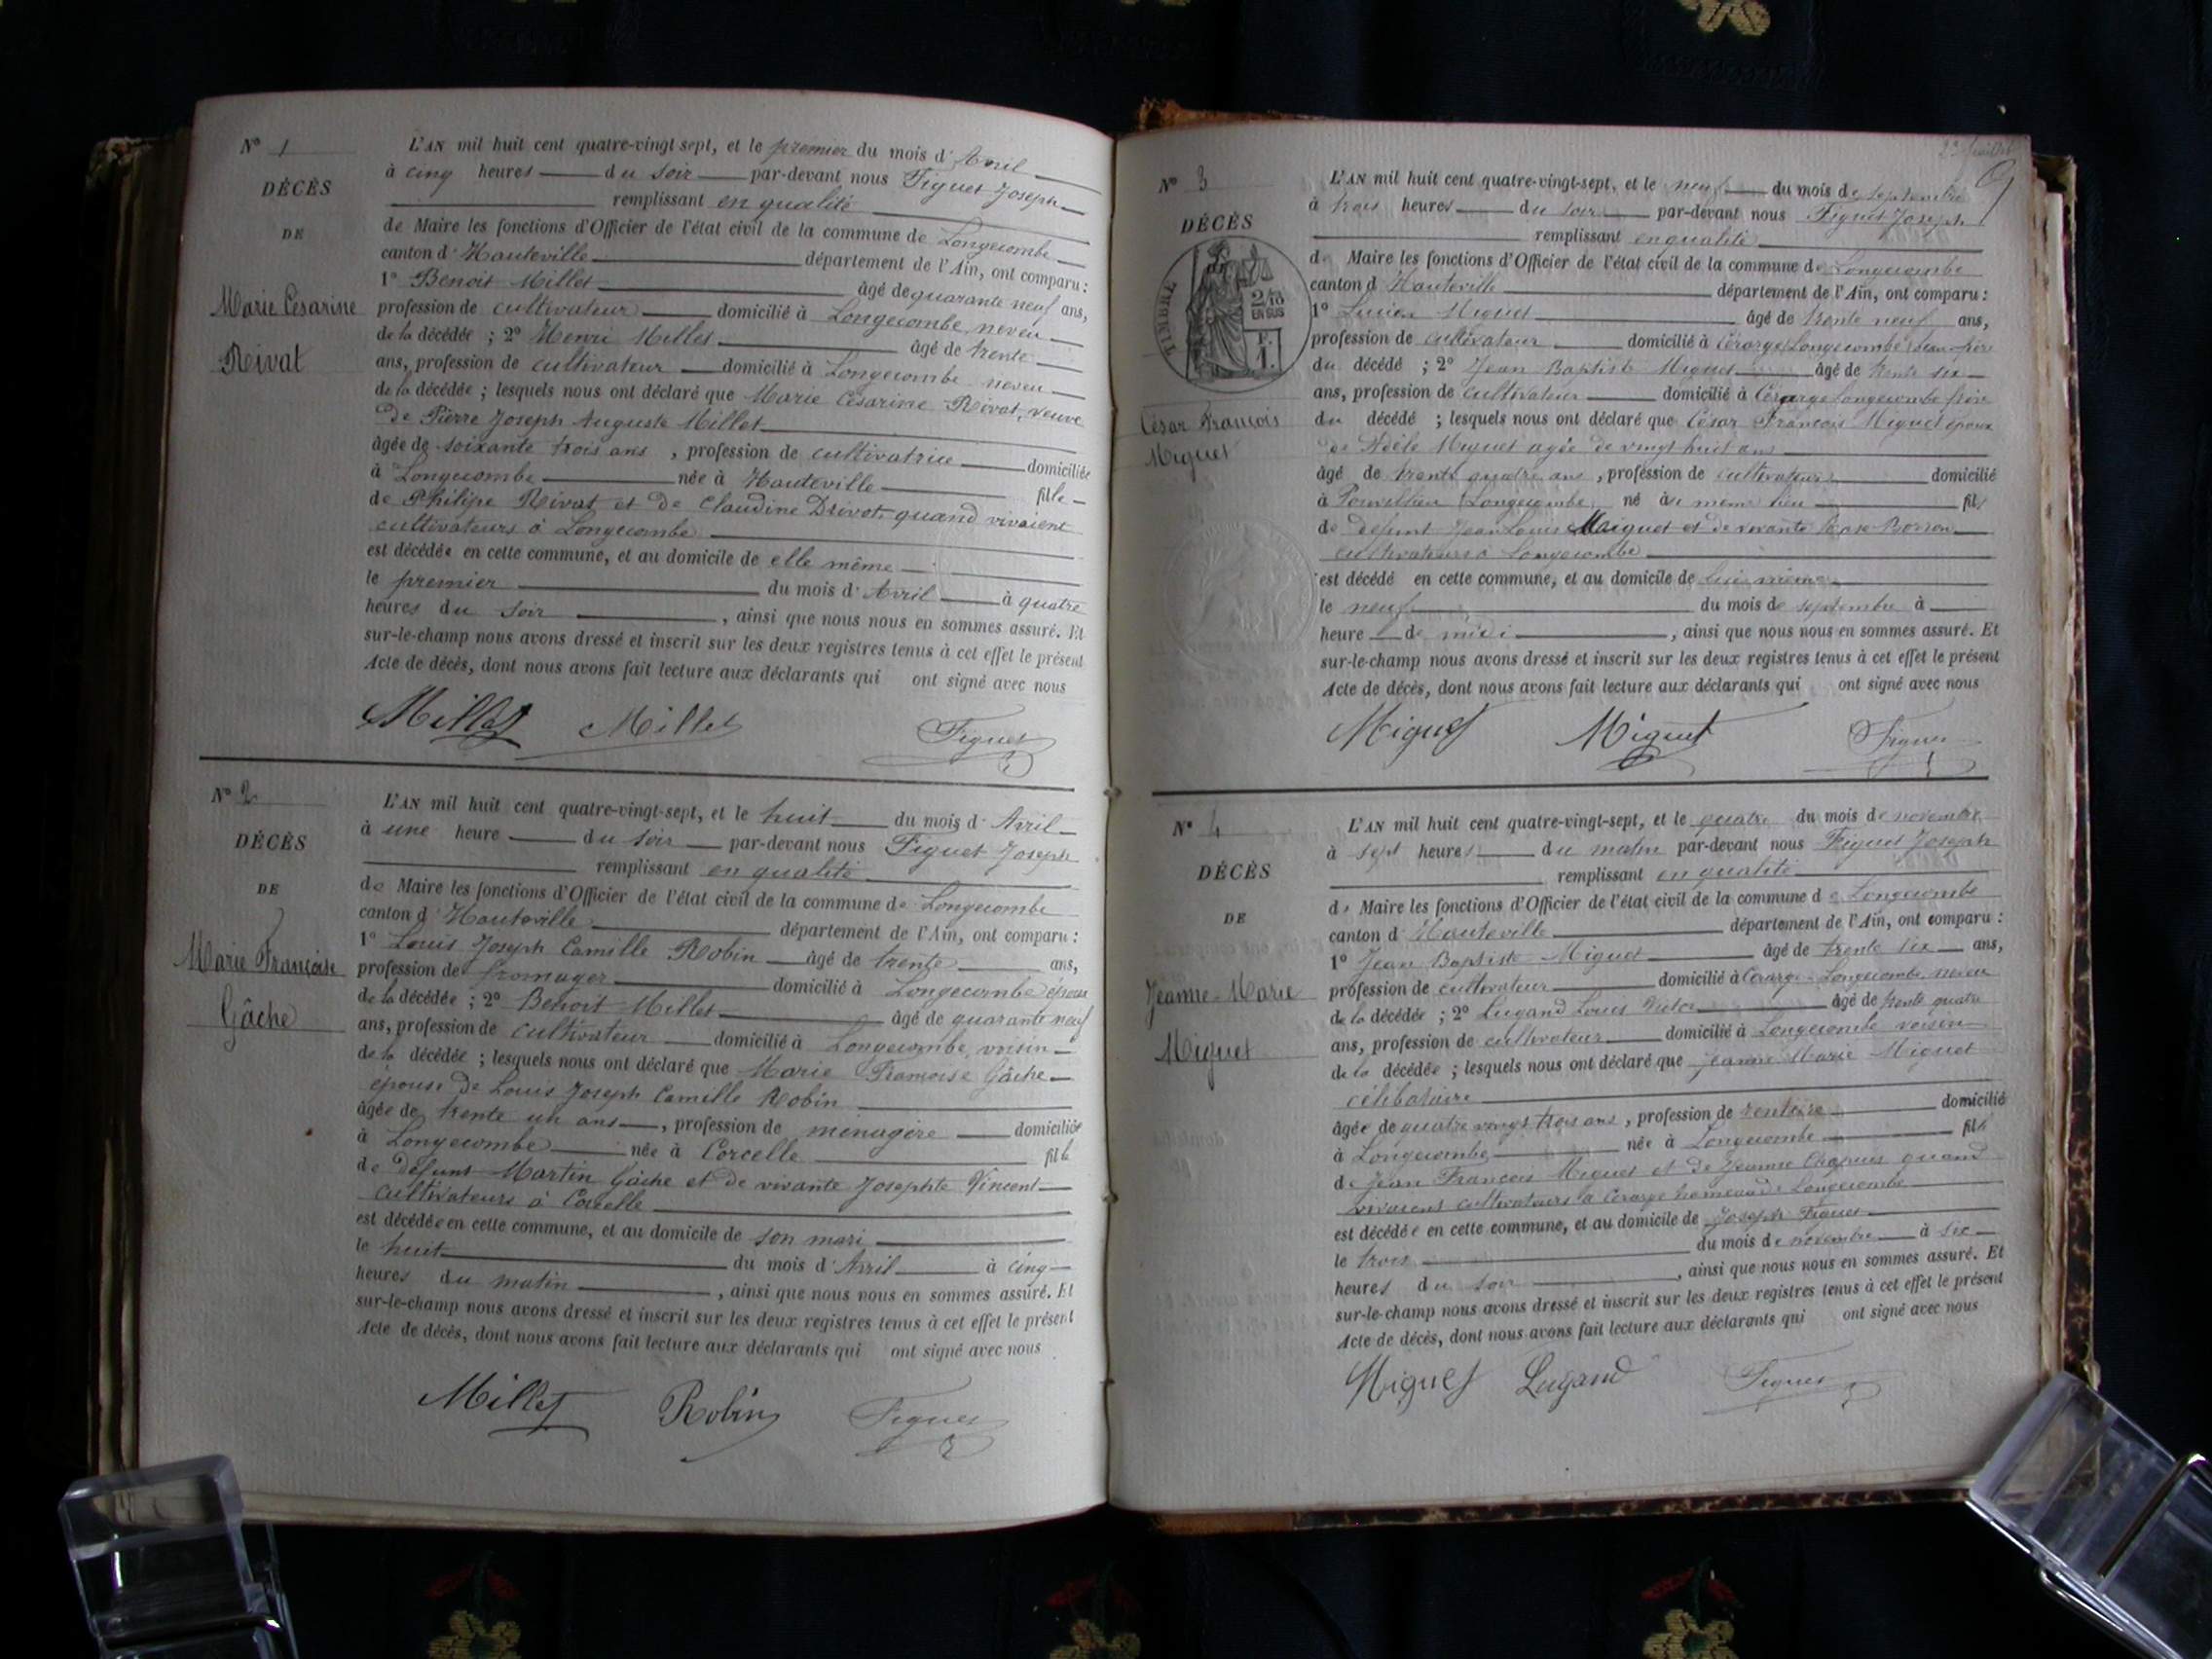 N° 1
DÉCÈS
DE
Marie Césarine
Rivat
L'AN mil huit cent quatre-vingt sept, et le premier du mois d'Avril
à cinq heures du soir par-devant nous Figuet Joseph
remplissant en qualité
de Maire les fonctions d'Officier de l'état civil de la commune de Longecombe
canton d'Hauteville département de l'Ain, ont comparu :
1° Benoit Millet âgé de quarante neuf ans,
profession de cultivateur domicilié à Longecombe, neveu
de la décédée ; 2° Henri Millet âgé de trente
ans, profession de cultivateur domicilié à Longecombe neveu
de la décédée ; lesquels nous ont déclaré que Marie Césarine Rivat, veuve
de Pierre Joseph Auguste Millet
âgée de soixante trois ans, profession de cultivatrice domiciliée
à Longecombe née à Hauteville fille
de Philipe Rivat et de Claudine Drivot, quand vivaient
cultivateurs à Longecombe
est décédée en cette commune, et au domicile de elle même
le premier du mois d'Avril à quatre
heures du soir, ainsi que nous nous en sommes assuré. Et
sur-le-champ nous avons dressé et inscrit sur les deux registres tenus à cet effet le présent
Acte de décès, dont nous avons fait lecture aux déclarants qui ont signé avec nous
Millet Millet Figuet
N° 2
DÉCÈS
DE
Marie Françoise
Gâche
L'AN mil huit cent quatre-vingt-sept, et le huit du mois d'Avril
à une heure du soir par-devant nous Figuet Joseph
remplissant en qualité
de Maire les fonctions d'Officier de l'état civil de la commune de Longecombe
canton d'Hauteville département de l'Ain, ont comparu :
1° Louis Joseph Camille Robin âgé de trente ans,
profession de fromager domicilié à Longecombe époux
de la décédée ; 2° Benoit Millet âgé de quarante neuf
ans, profession de cultivateur domicilié à Longecombe, voisin
de la décédée ; lesquels nous ont déclaré que Marie Françoise Gâche
épouse de Louis Joseph Camille Robin
âgée de trente un ans, profession de ménagère domiciliée
à Longecombe née à Corcelle fille
de défunt Martin Gâche et de vivante Josephte Vincent
cultivateurs à Corcelle
est décédée en cette commune, et au domicile de son mari
le huit du mois d'Avril à cinq
heures du matin, ainsi que nous nous en sommes assuré. Et
sur-le-champ nous avons dressé et inscrit sur les deux registres tenus à cet effet le présent
Acte de décès, dont nous avons fait lecture aux déclarants qui ont signé avec nous
Millet Robin Figuet
N° 3
DÉCÈS
TIMBRE
2/10
EN SUS
F.
1.
César François
Miguet
L'AN mil huit cent quatre-vingt-sept, et le neuf du mois de septembre
à trois heures du soir par-devant nous Figuet Joseph
remplissant en qualité
de Maire les fonctions d'Officier de l'état civil de la commune de Longecombe
canton d Hauteville département de l'Ain, ont comparu :
1° Lucien Miguet âgé de trente neuf ans,
profession de cultivateur domicilié à Cérarge Longecombe beau-frère
du décédé ; 2° Jean Baptiste Miguet âgé de trente six
ans, profession de cultivateur domicilié à Cérarge Longecombe frère
du décédé ; lesquels nous ont déclaré que César François Miguet époux
de Adèle Miguet agée de vingt huit ans
âgé de trente quatre ans, profession de cultivateur domicilié
à Longecombe, né au meme lieu fils
de défunt Jean Louis Miguet et de vivante Rose
cultivateurs à Longecombe
est décédé en cette commune, et au domicile de lui même
le neuf du mois de septembre à
heure de midi, ainsi que nous nous en sommes assuré. Et
sur-le-champ nous avons dressé et inscrit sur les deux registres tenus à cet effet le présent
Acte de décès, dont nous avons fait lecture aux déclarants qui ont signé avec nous
Miguet Miguet Figuet
N° 4
DÉCÈS
DE
Jeanne-Marie
Miguet
L'AN mil huit cent quatre-vingt-sept, et le quatre du mois de novembre
à sept heures du matin par-devant nous Figuet Joseph
remplissant en qualité
de Maire les fonctions d'Officier de l'état civil de la commune de Longecombe
canton d'Hauteville département de l'Ain, ont comparu :
1° Jean Baptiste Miguet âgé de trente six ans,
profession de cultivateur domicilié à Cérarge Longecombe neveu
de la décédée ; 2° Lugand Louis Victor âgé de trente quatre
ans, profession de cultivateur domicilié à Longecombe voisin
de la décédée ; lesquels nous ont déclaré que Jeanne Marie Miguet
célibataire
âgée de quatre vingt trois ans, profession de rentière domicilié
à Longecombe née à Longecombe fille
de Jean François Miguet et de Jeanne Chapuis quand
vivaient cultivateurs à Cérarge hameau de Longecombe
est décédée en cette commune, et au domicile de Joseph Figuet
le trois du mois de novembre à six
heures du soir, ainsi que nous nous en sommes assuré. Et
sur-le-champ nous avons dressé et inscrit sur les deux registres tenus à cet effet le présent
Acte de décès, dont nous avons fait lecture aux déclarants qui ont signé avec nous
Miguet Lugand Figuet